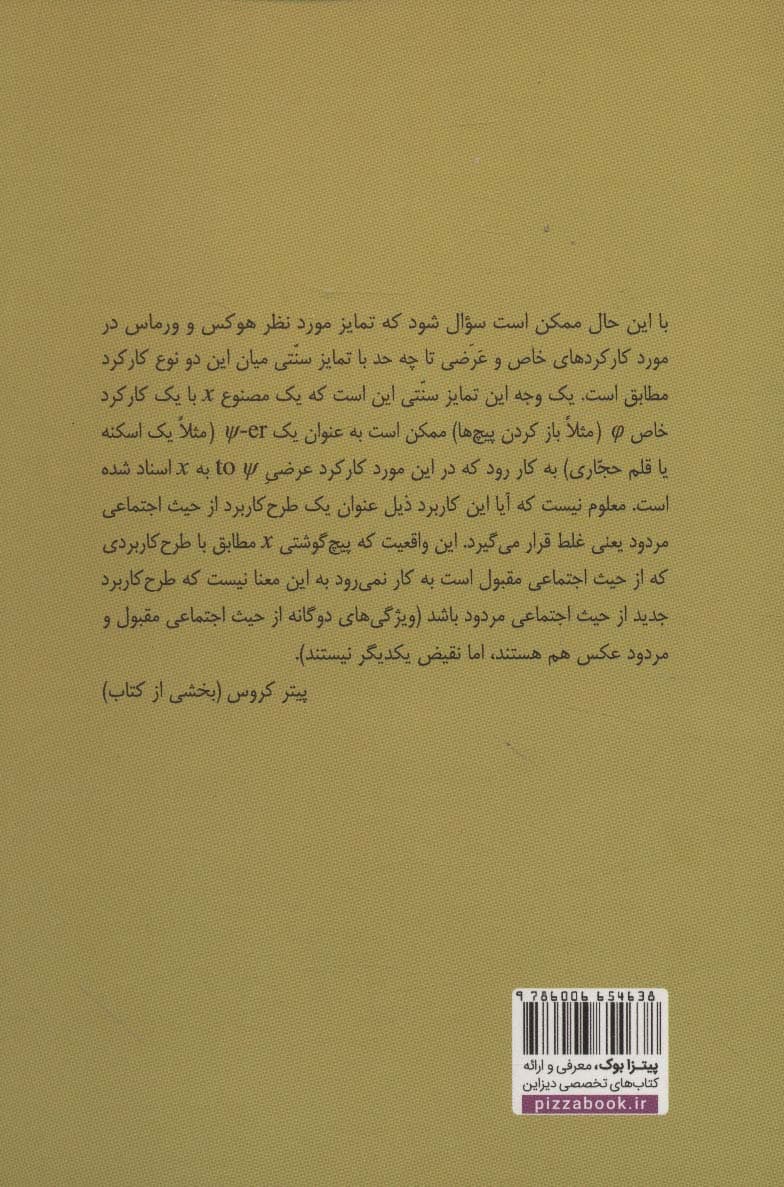 با این حال ممکن است سؤال شود که تمایز مورد نظر هوکس و ورماس در
مورد کارکردهای خاص و عَرَضی تا چه حد با تمایز سنّتی میان این دو نوع کارکرد
مطابق است. یک وجه این تمایز سنّتی این است که یک مصنوع x با یک کارکرد
خاص φ (مثلاً باز کردن پیچ‌ها) ممکن است به عنوان یک ψ-er (مثلاً یک اسکنه
یا قلم حجّاری) به کار رود که در این مورد کارکرد عرضیِ to ψ به x اسناد شده
است. معلوم نیست که آیا این کاربرد ذیل عنوان یک طرح‌کاربرد از حیث اجتماعی
مردود یعنی غلط قرار می‌گیرد. این واقعیت که پیچ‌گوشتی x مطابق با طرح‌کاربردی
که از حیث اجتماعی مقبول است به کار نمی‌رود به این معنا نیست که طرح‌کاربرد
جدید از حیث اجتماعی مردود باشد (ویژگی‌های دوگانه از حیث اجتماعی مقبول و
مردود عکس هم هستند، اما نقیض یکدیگر نیستند).
پیتر کروس (بخشی از کتاب)
9 786006 654638
پیتزا بوک، معرفی و ارائه
کتاب‌های تخصصی دیزاین
pizzabook.ir